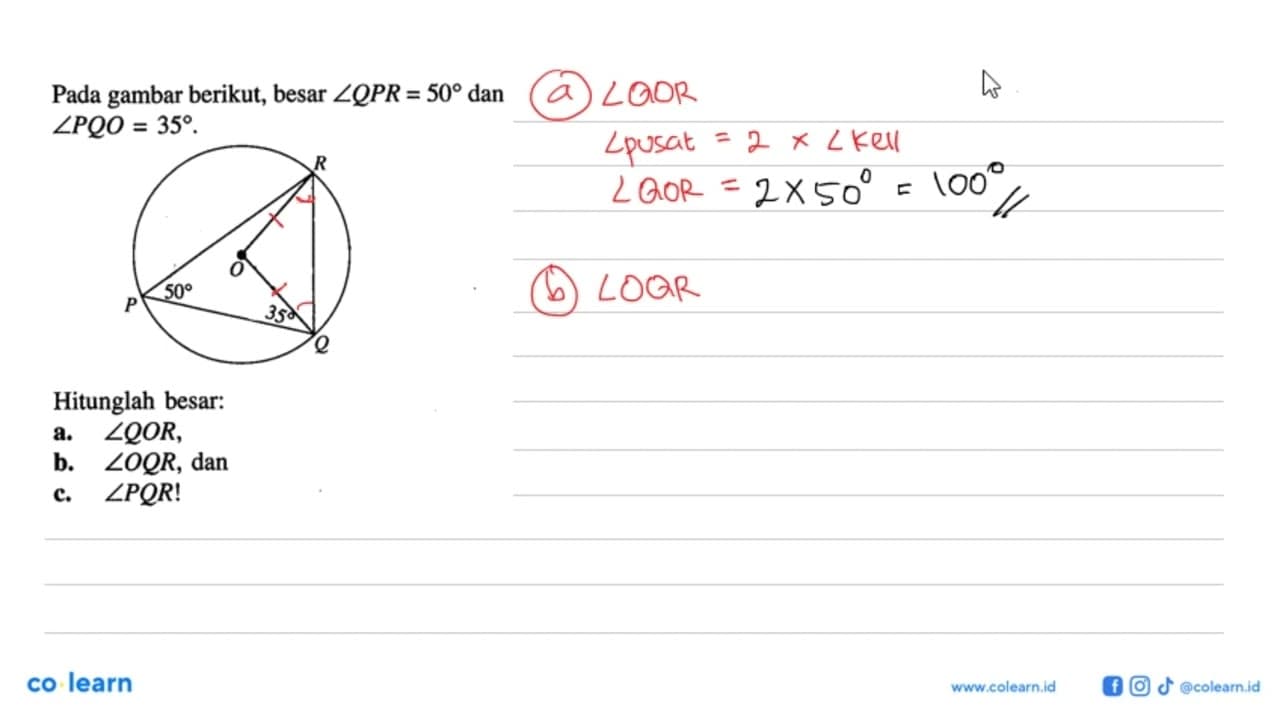 Pada gambar berikut, besar ∠QPR = 50° dan
∠PQO = 35°.
R
O
P
50°
35°
Q
Hitunglah besar:
a. ∠QOR,
b. ∠OQR, dan
c. ∠PQR!
a ∠QOR
∠pusat = 2 x ∠kell
∠QOR = 2 x 50° = 100°//
b ∠OQR
co learn
www.colearn.id
@colearn.id